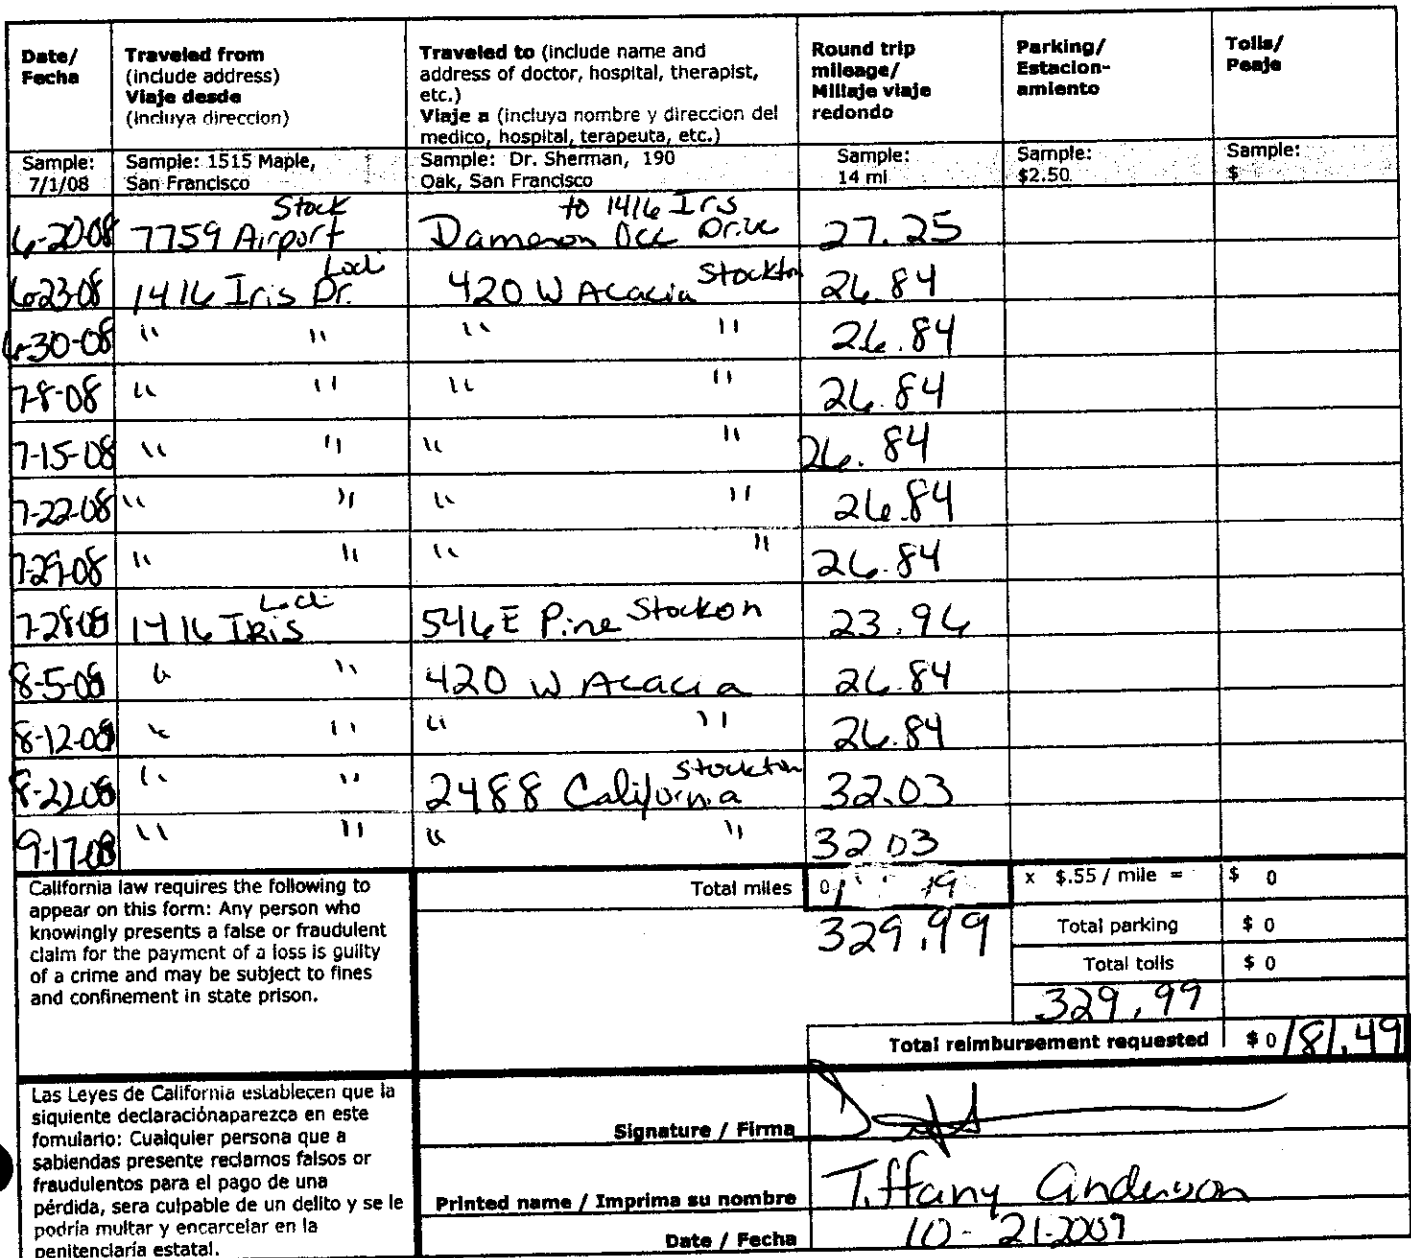 Date/ Fecha
Traveled from (include address) Viaje desde (incluya direccion)
Traveled to (include name and address of doctor, hospital, therapist, etc.) Viaje a (incluya nombre y direccion del medico, hospital, terapeuta, etc.)
Round trip mileage/ Millaje viaje redondo
Parking/ Estacion-amiento
Tolls/ Peaje
Sample: 7/1/08
Sample: 1515 Maple, San Francisco
Sample: Dr. Sherman, 190 Oak, San Francisco
Sample: 14 mi
Sample: $2.50
Sample: $
6-20-08 7759 Airport Stock Dameron Occ to 1416 Irs Drive 27.25
6-23-08 1416 Iris Dr. Lodi 420 W Acacia Stockton 26.84
6-30-08 " " " " 26.84
7-8-08 " " " " 26.84
7-15-08 " " " " 26.84
7-22-08 " " " " 26.84
7-29-08 " " " " 26.84
7-28-08 1416 IRis Lodi 546 E Pine Stockon 23.96
8-5-08 " " 420 W Acacia 26.84
8-12-08 " " " " 26.84
8-22-08 " " 2488 California Stockton 32.03
9-17-08 " " " " 32.03
California law requires the following to
appear on this form: Any person who
knowingly presents a false or fraudulent
claim for the payment of a loss is guilty
of a crime and may be subject to fines
and confinement in state prison.
Total miles 0
329.99
x $.55 / mile = $ 0
Total parking $ 0
Total tolls $ 0
329.99
Total reimbursement requested $ 0 181.49
Las Leyes de California establecen que la
siquiente declaraciónaparezca en este
fomulario: Cualquier persona que a
sabiendas presente reclamos falsos or
fraudulentos para el pago de una
pérdida, sera culpable de un delito y se le
podría multar y encarcelar en la
penitenciaría estatal.
Signature / Firma
Printed name / Imprima su nombre Tiffany Anderson
Date / Fecha 10-21-2009